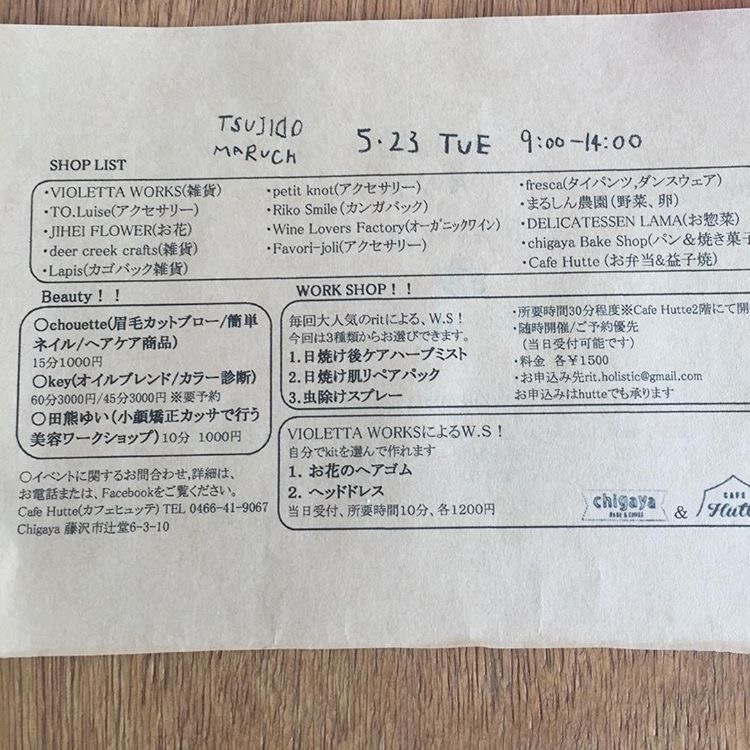 TSUJIDO
MARUCH
5.23 TUE 9:00-14:00
SHOP LIST
・VIOLETTA WORKS(雑貨)
・TO.Luise(アクセサリー)
・JIHEI FLOWER(お花)
・deer creek crafts(雑貨)
・Lapis(カゴバック雑貨)
・petit knot(アクセサリー)
・Riko Smile(カンガバック)
・Wine Lovers Factory(オーガニックワイン)
・Favori-joli(アクセサリー)
・fresca(タイパンツ,ダンスウェア)
・まるしん農園(野菜、卵)
・DELICATESSEN LAMA(お惣菜)
・chigaya Bake Shop(パン&焼き菓子
・Cafe Hutte (お弁当&益子焼)
Beauty！！
○chouette(眉毛カットブロー/簡単
ネイル/ヘアケア商品)
15分1000円
○key(オイルブレンド/カラー診断)
60分3000円/45分3000円 ※要予約
○田熊ゆい(小顔矯正カッサで行う
美容ワークショップ)10分 1000円
○イベントに関するお問合わせ,詳細は、
お電話または、Facebookをご覧ください。
Cafe Hutte(カフェヒュッテ) TEL 0466-41-9067
Chigaya 藤沢市辻堂6-3-10
WORK SHOP！！
毎回大人気のritによる、W.S！
今回は3種類からお選びできます。
1.日焼け後ケアハーブミスト
2.日焼け肌リペアパック
3.虫除けスプレー
・所要時間30分程度※Cafe Hutte2階にて開
・随時開催/ご予約優先
(当日受付可能です)
・料金 各¥1500
・お申込み先rit.holistic@gmail.com
お申込みはhutteでも承ります
VIOLETTA WORKSによるW.S！
自分でkitを選んで作れます
1. お花のヘアゴム
2. ヘッドドレス
当日受付、所要時間10分、各1200円
chigaya
BAKE & COFFEE
&
CAFE
Hutte